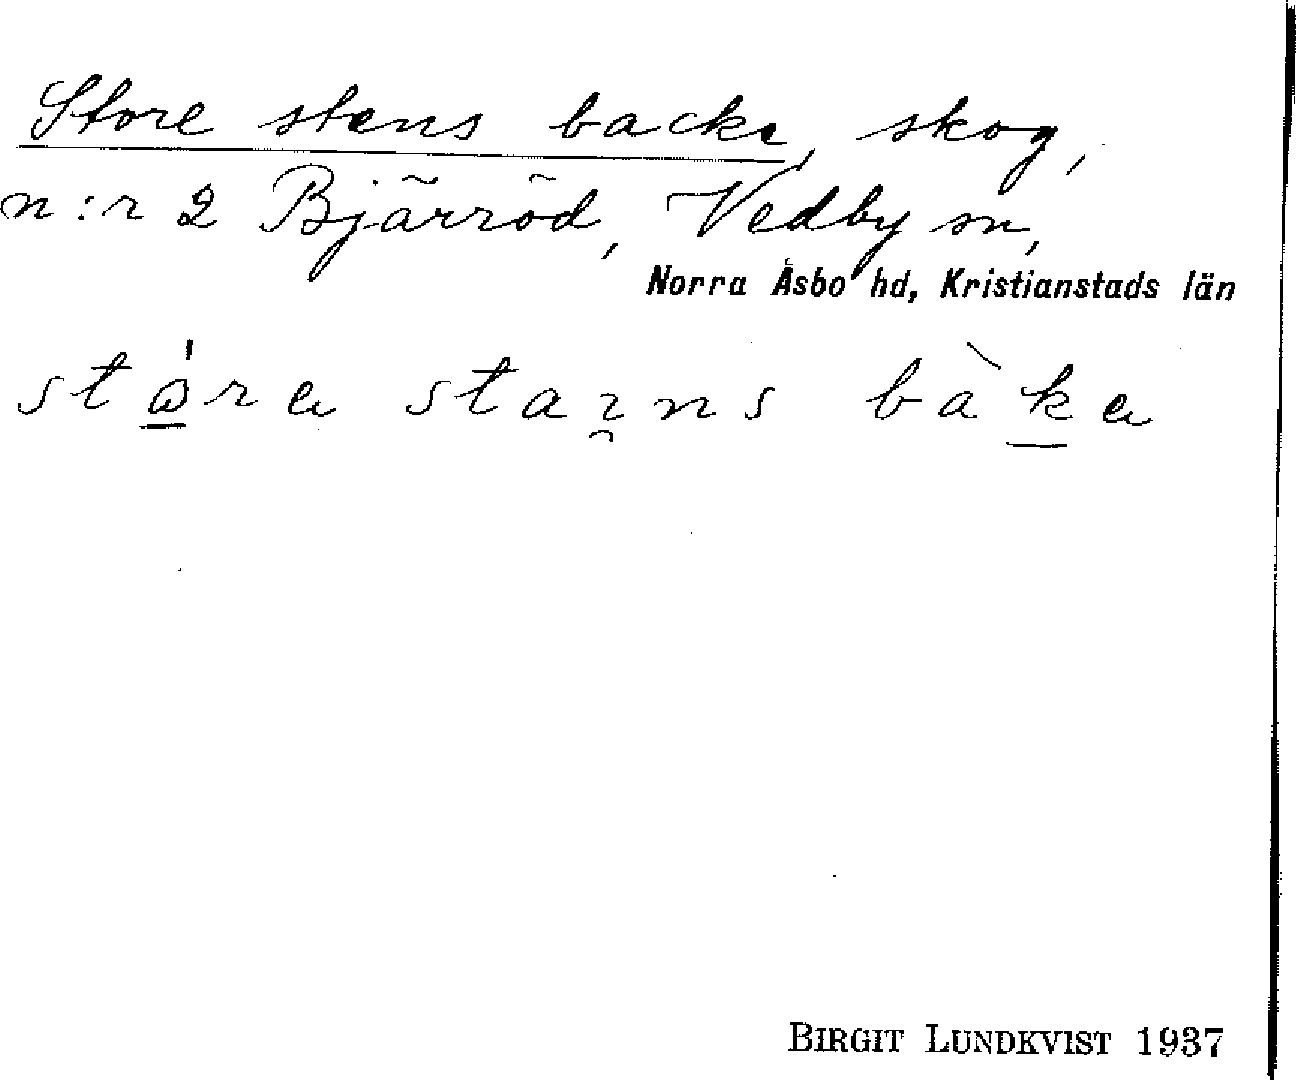 Store stens backe, skog,
n:r 2 Bjärröd, Vedby sn,
Norra Åsbo hd, Kristianstads län
BIRGIT LUNDKVIST 1937